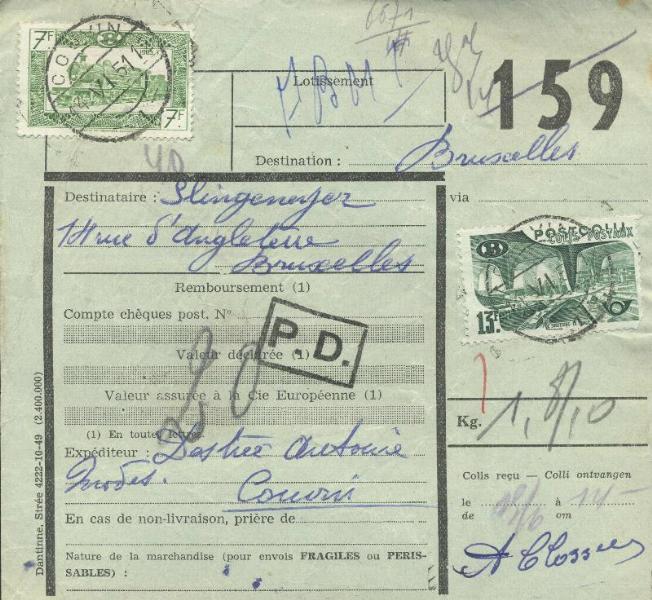 7F
7F
Lotissement
159
Destination : Bruxelles
Destinataire : Slingeneyer
14 rue d'Angleterre
Bruxelles
via
POSTCOLLI
COLIS POSTAUX
13F
Remboursement (1)
Compte chèques post. N°
P.D.
Valeur déclarée (1)
Valeur assurée à la Cie Européenne (1)
(1) En toutes lettres
Kg.
Expéditeur : Destrée Antoine
Modes. Couvin
Colis reçu — Colli ontvangen
le 18/6 à 14
de om
En cas de non-livraison, prière de
Nature de la marchandise (pour envois FRAGILES ou PERIS-
SABLES) :
Dantinne, Strée 4222-10-49 (2.400.000)